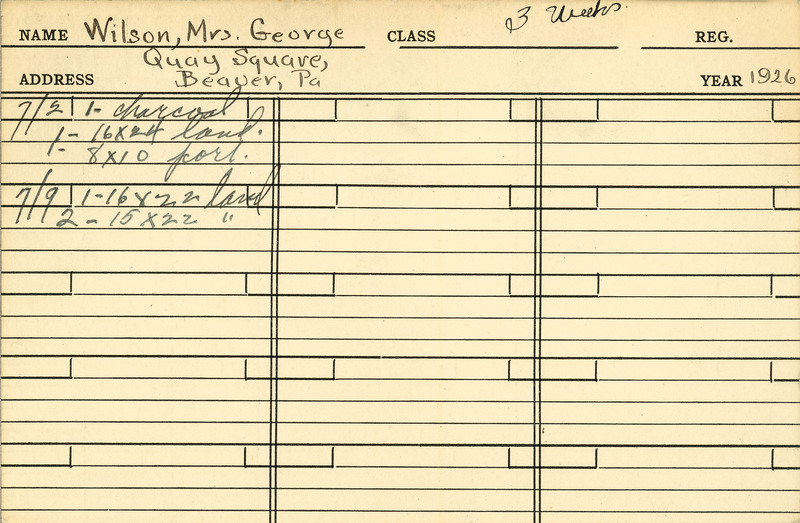 3 Weeks.
NAME Wilson, Mrs. George CLASS REG.
Quay Square,
ADDRESS Beaver, Pa YEAR 1926
7/2 1- charcoal
1- 16X24 land.
1- 8X10 port.
7/9 1-16X22 land
2 - 15X22 "